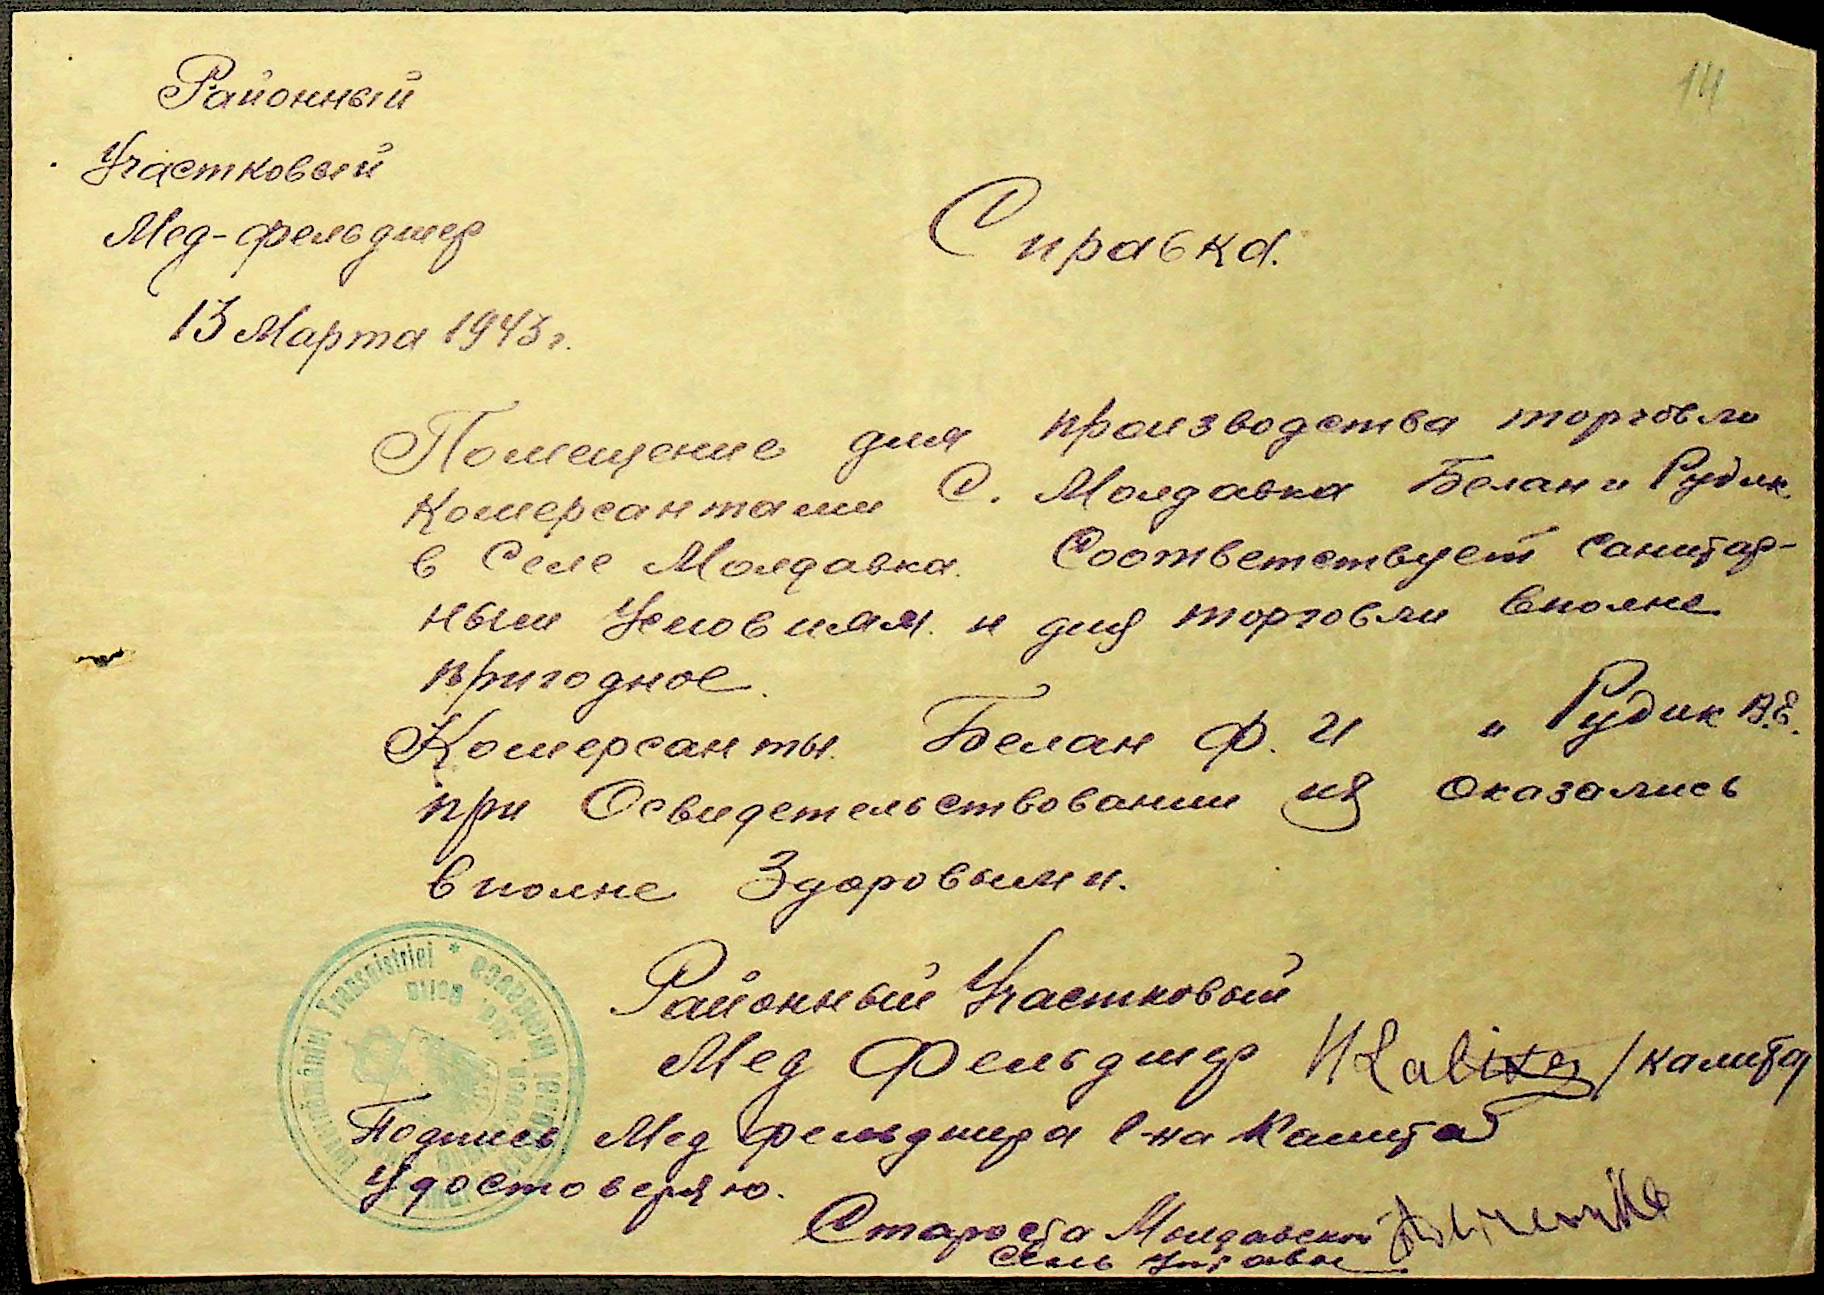 14
Районный
Участковый
Мед-фельдшер
13 Марта 1943 г.
Справка.
Помещение для производства торговли
комерсантами С. Молдавка Белан и Рудик
в Селе Молдавка. Соответствует санитар-
ным Условиям. и для торговли вполне
пригодное.
Комерсанты. Белан Ф. И " Рудик В.Е.
при Освидетельствовании их оказались
вполне Здоровыми.
Районный Участковый
Мед Фельдшер /Калита
Подпись Мед фельдшера Г-на Калита
Удостоверяю.
Староста Молдавской
Сель Управы
Guvernământul Transnistriei *